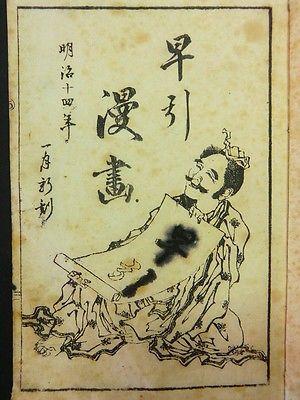 早引
漫畫
明治十四年
一月新刻